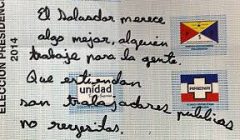 ELECCIÓN PRESIDENC
2014
El Salvador merece
algo mejor, alguien
trabaje para la gente.
Que entiendan
unidad
son trabajadores públicos
no reyesitos.